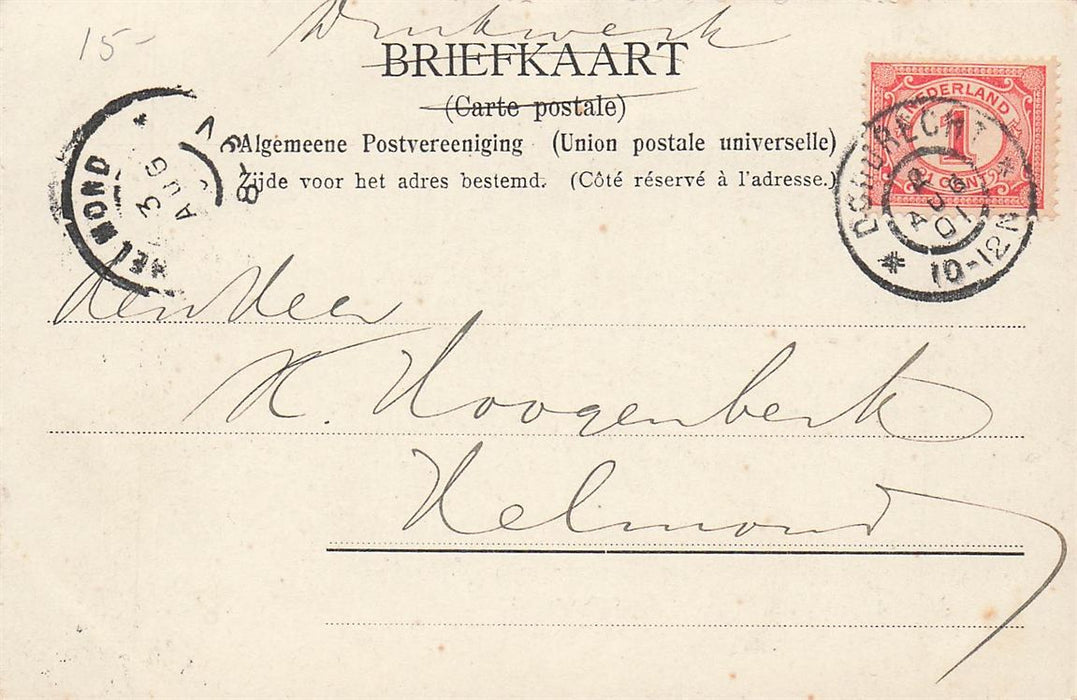 15-
Drukwerk
BRIEFKAART
(Carte postale)
Algemeene Postvereeniging (Union postale universelle)
Zijde voor het adres bestemd. (Côté réservé à l'adresse.)
NEDERLAND
1
1 CENT
DORDRECHT
2
AUG
01
10-12N
HELMOND
3
AUG
6-8V
den Heer
H. Hoogenberk
Helmond